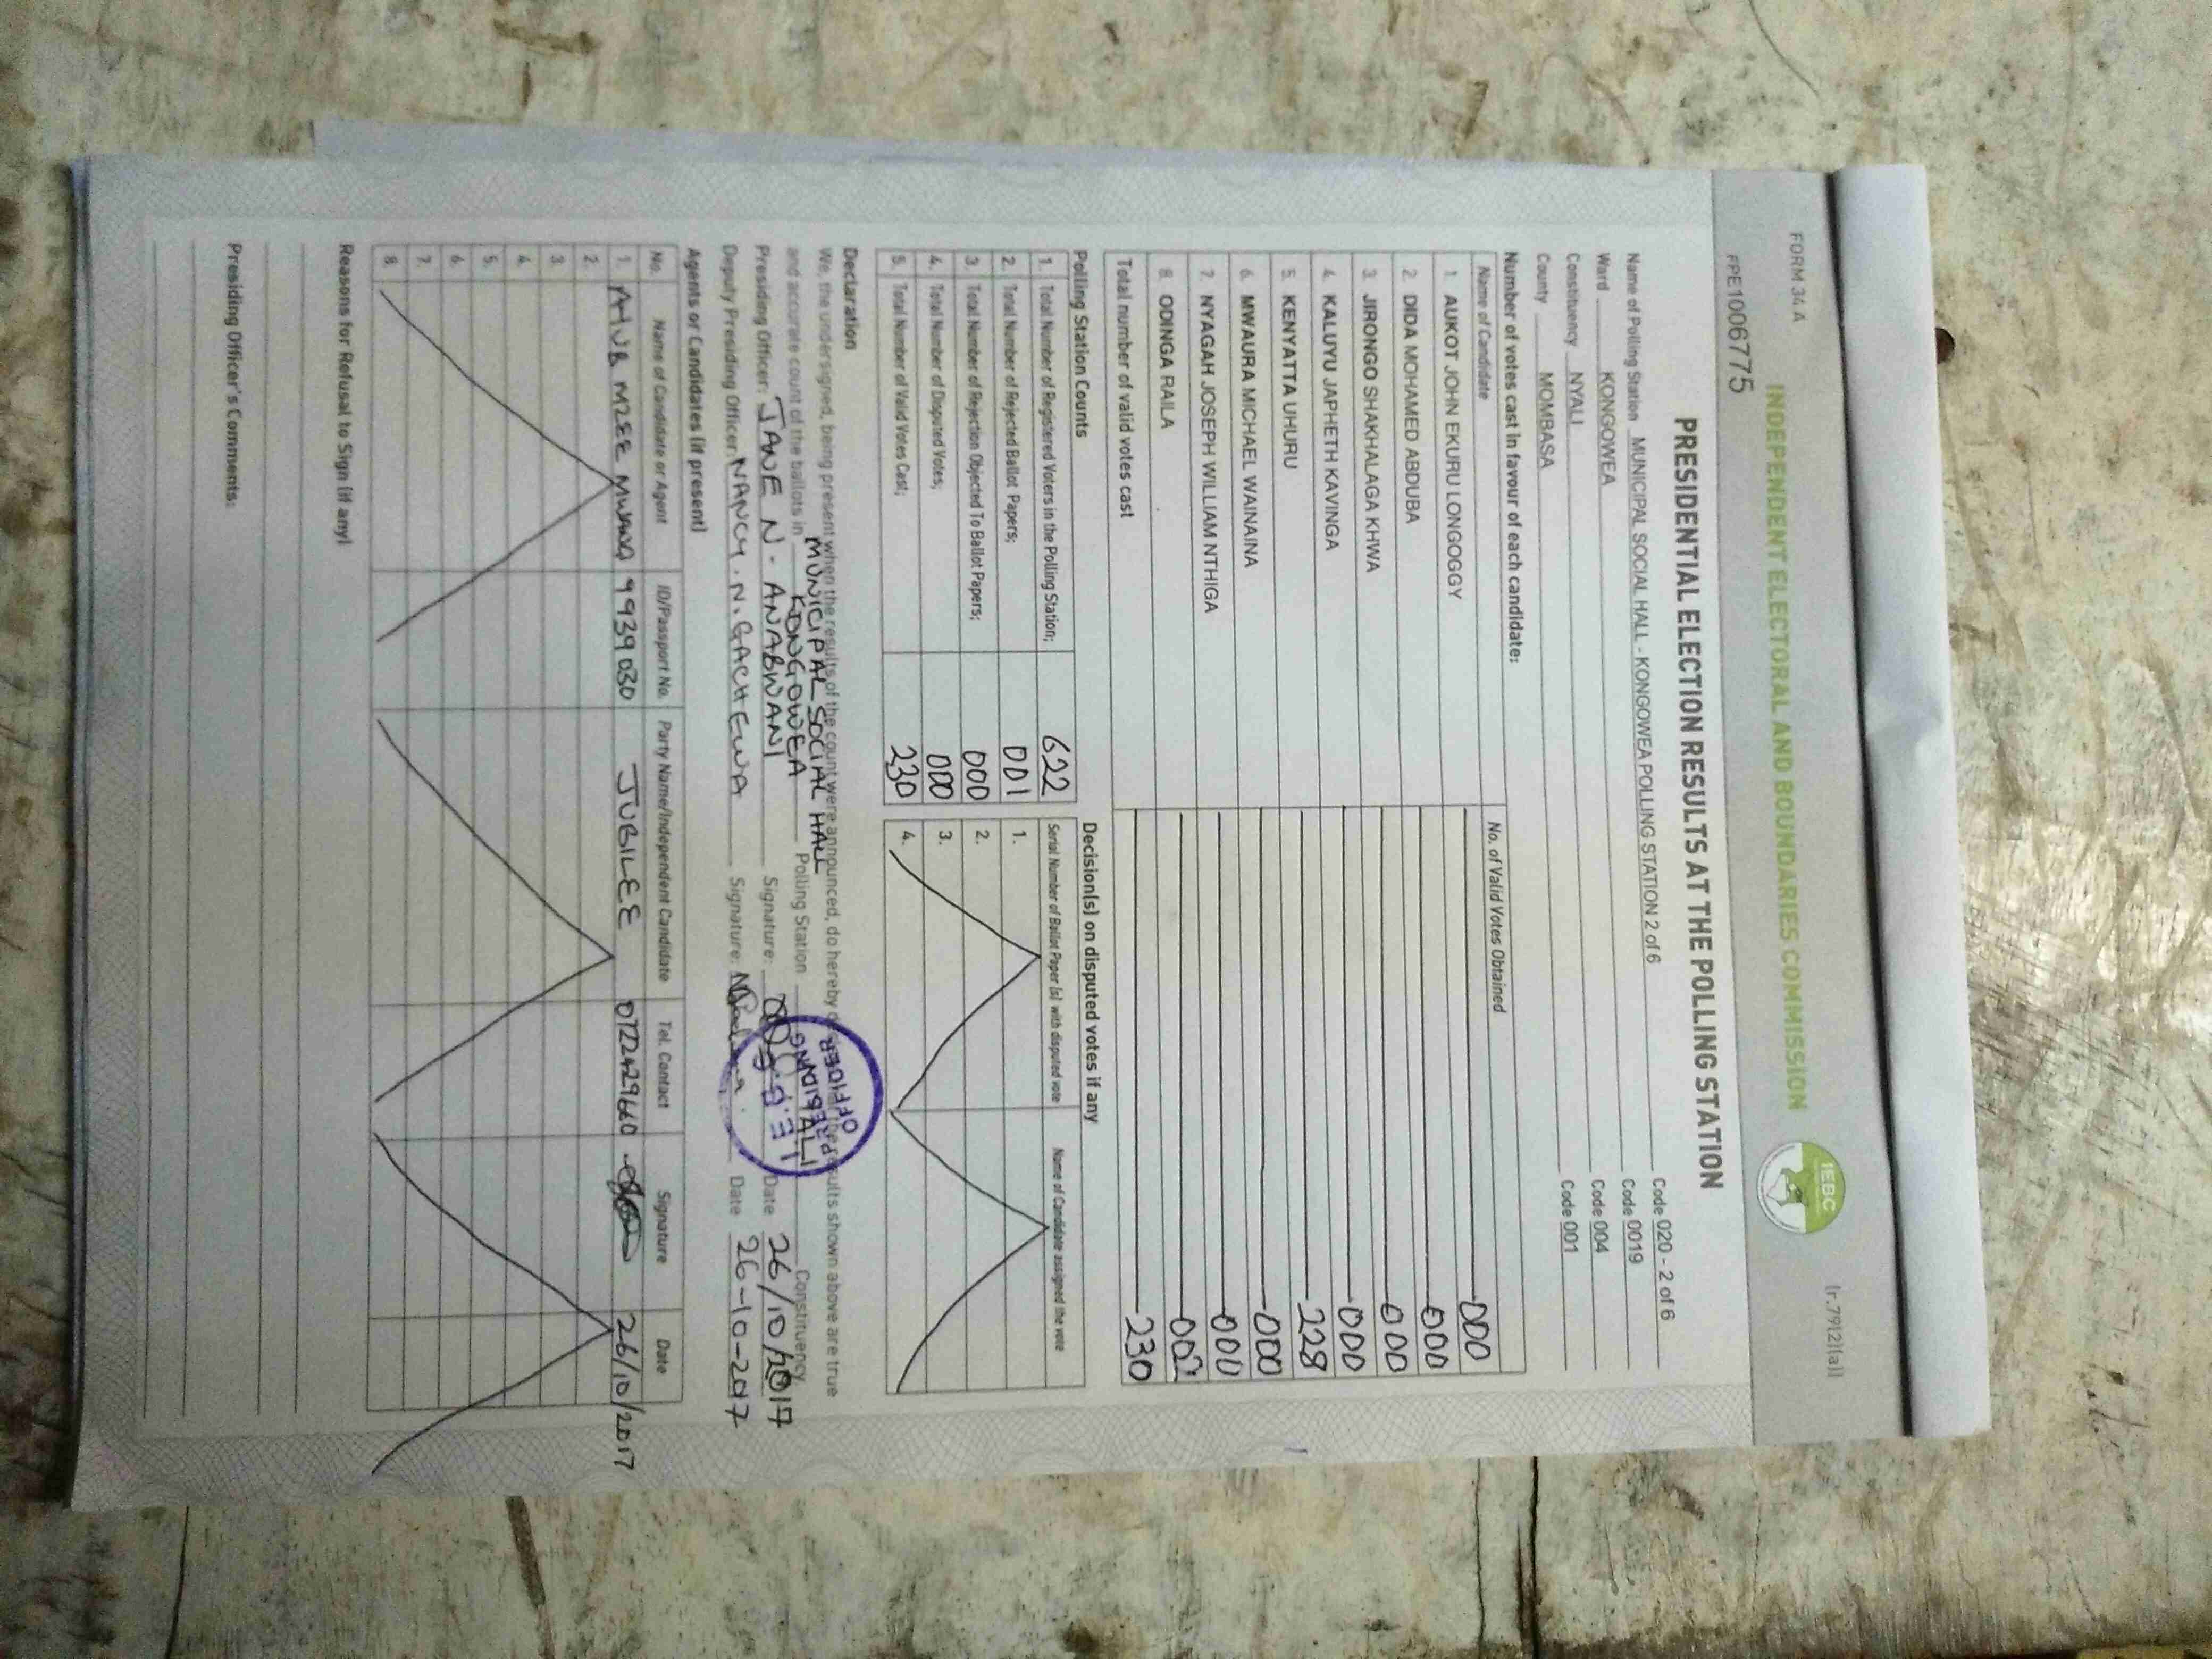 FORM 34 A
(r.79(2)(a))
INDEPENDENT ELECTORAL AND BOUNDARIES COMMISSION
IEBC
FPE1006775
PRESIDENTIAL ELECTION RESULTS AT THE POLLING STATION
Name of Polling Station MUNICIPAL SOCIAL HALL - KONGOWEA POLLING STATION 2 of 6 Code 020 - 2 of 6
Ward KONGOWEA Code 0019
Constituency NYALI Code 004
County MOMBASA Code 001
Number of votes cast in favour of each candidate:
Name of Candidate No. of Valid Votes Obtained
1 AUKOT JOHN EKURU LONGOGGY 000
2. DIDA MOHAMED ABDUBA 000
3. JIRONGO SHAKHALAGA KHWA 000
4. KALUYU JAPHETH KAVINGA 000
5. KENYATTA UHURU 228
6. MWAURA MICHAEL WAINAINA 000
7. NYAGAH JOSEPH WILLIAM NTHIGA 000
8. ODINGA RAILA 002
Total number of valid votes cast 230
Polling Station Counts
1. Total Number of Registered Voters in the Polling Station; 622
2. Total Number of Rejected Ballot Papers; 001
3. Total Number of Rejection Objected To Ballot Papers; 000
4. Total Number of Disputed Votes; 000
5. Total Number of Valid Votes Cast; 230
Decision(s) on disputed votes if any
Serial Number of Ballot Paper (s) with disputed vote Name of Candidate assigned the vote
1.
2.
3.
4.
Declaration
We, the undersigned, being present when the results of the count were announced, do hereby the results shown above are true
MUNICIPAL SOCIAL HALL
and accurate count of the ballots in KONGOWEA Polling Station NYALI Constituency
Presiding Officer: JANE N. ANABWANI Signature: Date 26/10/2017
Deputy Presiding Officer: NANCY . N. GACHEWA Signature: Date 26-10-2017
PRESIDING OFFICER
I.E.B.C
Agents or Candidates (if present)
No. Name of Candidate or Agent ID/Passport No. Party Name/Independent Candidate Tel. Contact Signature Date
1. MZEE 9939030 JUBILEE 0722429660 26/10/2017
2.
3.
4.
5.
6.
7.
8.
Reasons for Refusal to Sign (if any)
Presiding Officer's Comments: